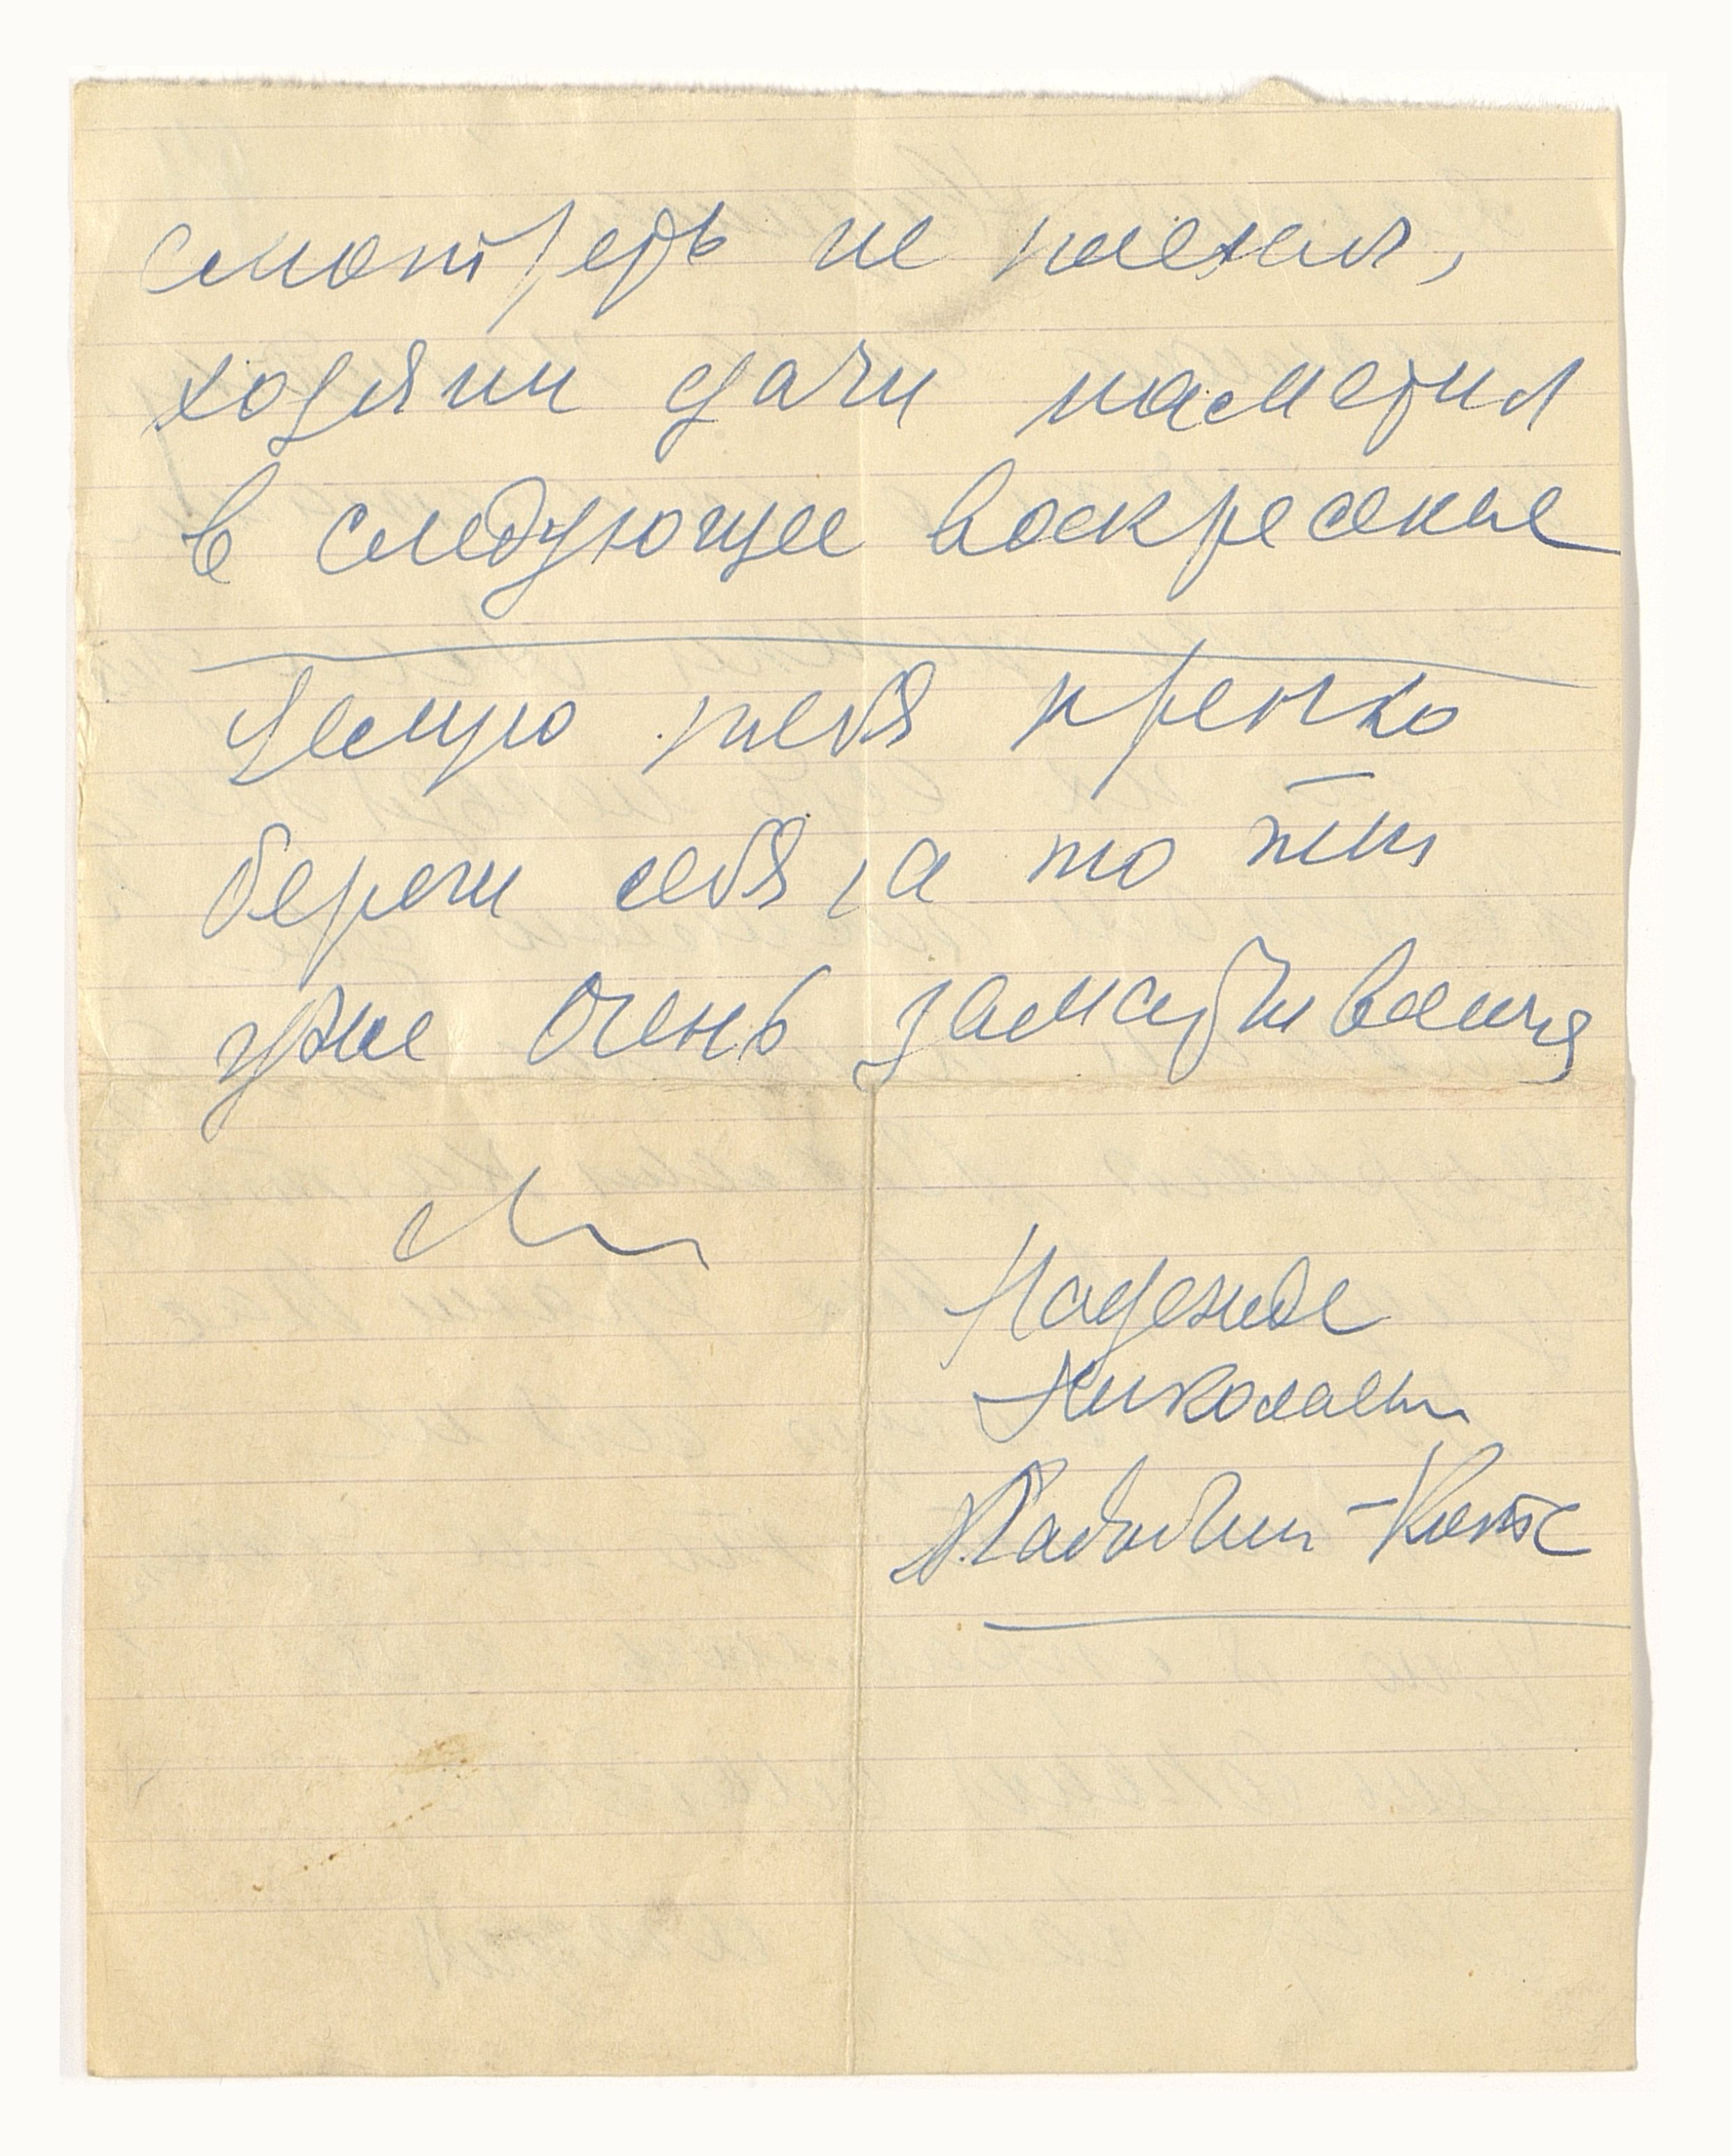 смотреть не поехал,
хозяин дачи наметил
в следующее воскресенье
Целую тебя крепко
береги себя, а то ты
уже очень
Надежде
Николаевне
Ладыгин-Котс